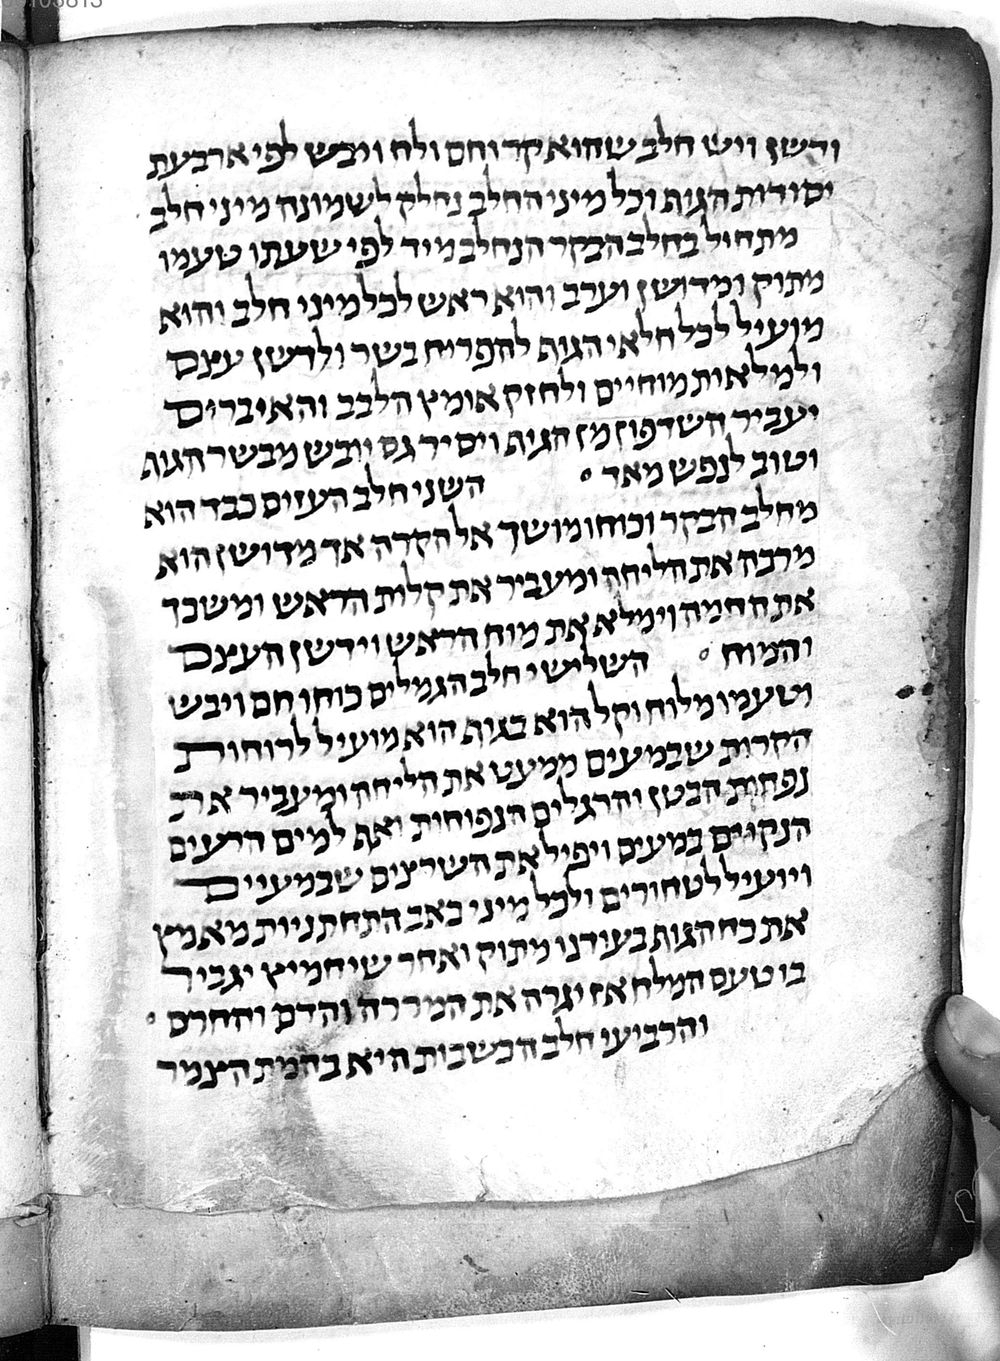 ודשן ויש חלב שהוא קר וחם ולח ויבש לפי ארבעת
יסודות הגות וכל מיני החלב נחלק לשמונה מיני חלב
מתחיל בחלב הבקר הנחלב מיד לפי שעתו טעמו
מתוק ומדושן וערב והוא ראש לכל מיני חלב והוא
מועיל לכל חלאי הגוף להפריח בשר ולדשן עצם
ולמלאות מוחיים ולחזק אומץ הלבב והאיברים
יעביר השדפון מן הגוית ויסיר גם יובש מבשר הגות
וטוב לנפש מאד
השני חלב העזים כבד הוא
מחלב הבקר וכוחו מושך אל הקרה אך מדושן הוא
מרבה את הליחה ומעביר את קלות הראש ומשכך
את החמה וימלא את מוח הראש וידשן העצם
והמוח
השלישי חלב הגמלים כוחו חם ויבש
וטעמו מלוח וקל הוא בגוית הוא מועיל לרוחות
הקרות שבמעים ממעט את הליחה ומעביר את
נפחות הבטן והרגלים הנפוחות ואף למים הרעים
הנקוים במעים ויפיל את השרצים שבמעיים
ויועיל לטחורים ולכל מיני כאב התחתניות מאמץ
את כח הגות בעודנו מתוק ואחר שיחמיץ יגביר
בו טעם המלח אז יגרה את המררה והדם והחרם
והרביעי חלב הכשבות היא בהמת הצמר
103813